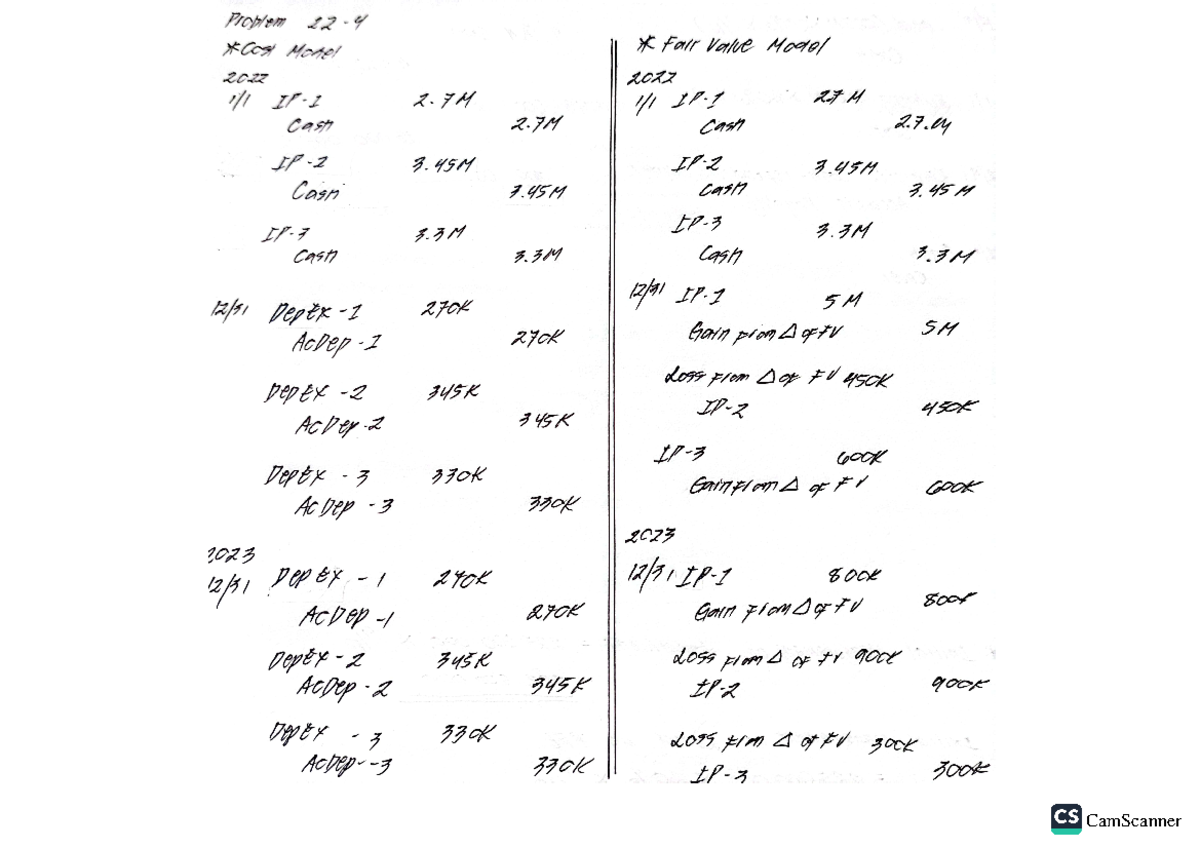 Problem 22-4
*Cost Model
2022
1/1 IP-1 2.7M
Cash 2.7M
IP-2 3.45M
Cash 3.45M
IP-3 3.3M
Cash 3.3M
12/31 DepEx-1 270K
AcDep-1 270K
DepEx-2 345K
AcDep-2 345K
DepEx-3 330K
AcDep-3 330K
2023
12/31 DepEx-1 270K
AcDep-1 270K
DepEx-2 345K
AcDep-2 345K
DepEx-3 330K
AcDep-3 330K
* Fair Value Model
2022
1/1 IP-1 27M
Cash 2.7M
IP-2 3.45M
Cash 3.45M
IP-3 3.3M
Cash 3.3M
12/31 IP-1 5M
Gain from Δ of FV 5M
Loss from Δ of FV 450K
IP-2 450K
IP-3 600K
Gain from Δ of FV 600K
2023
12/31 IP-1 800K
Gain from Δ of FV 800K
Loss from Δ of FV 900K
IP-2 900K
Loss from Δ of FV 300K
IP-3 300K
CS CamScanner